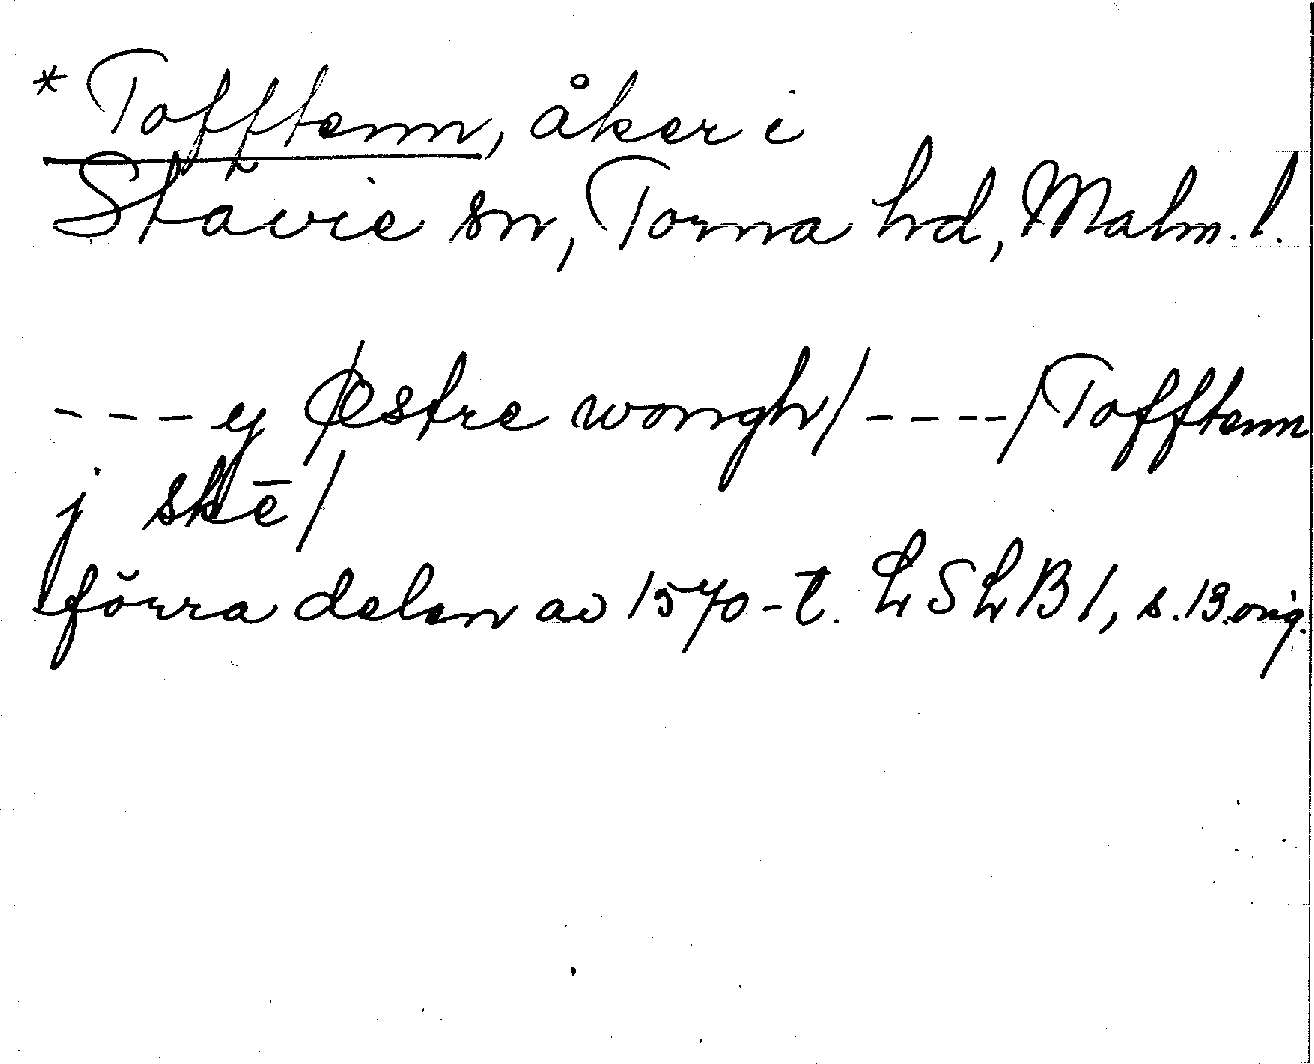 * Tofftenn, åker i
Stävie sn, Torna hd, Malm. l.
- - - y Østre wongh/ - - - - /Tofftenn
j skē/
förra delen av 1570-t. LSLB 1, s. 13. orig.